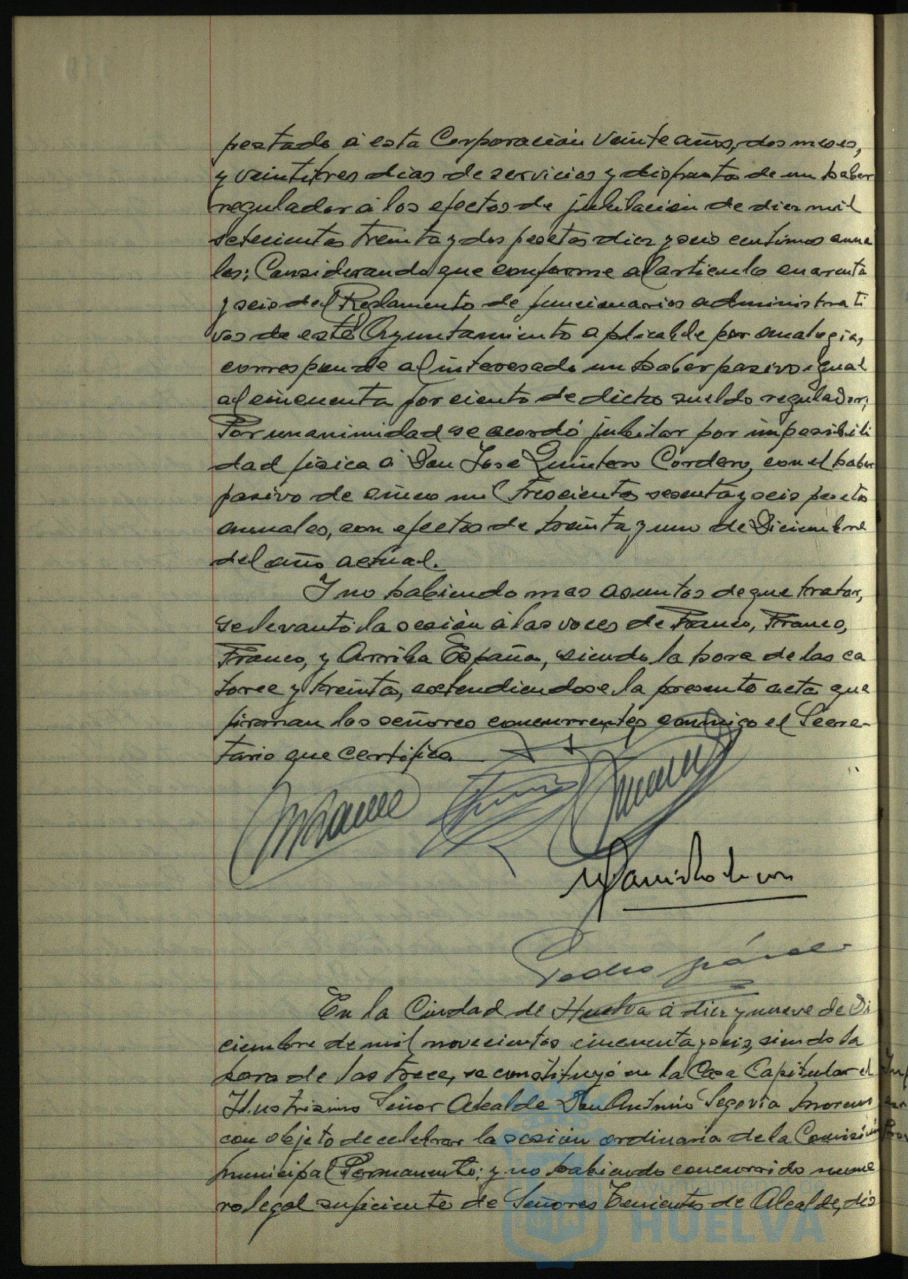 prestado á esta Corporación veinte años, dos meses,
y veintitres dias de servicios y disfrunta de un haber
regulador á los efectos de jubilación de diez mil
setecientas treinta y dos pesetas diez y seis centimos anua
les; Considerando que conforme al articulo cuarenta
y seis del Reglamento de funcionarios administrati
vos de este Ayuntamiento aplicable por analogia,
corresponde al interesado un haber pasivo igual
al cincuenta por ciento de dicho sueldo regulador;
Por unanimidad se acordó jubilar por imposibili
dad fisica á Don José Quintero Cordero, con el haber
pasivo de cinco mil trescientas sesenta y seis pesetas
anuales, con efectos de treinta y uno de Diciembre
del año actual.
Y no habiendo mas asuntos de que tratar,
se levantó la sesión á las voces de Franco, Franco,
Franco, y Arriba España, siendo la hora de las ca
torce y treinta, extendiendose la presente acta que
firman los señores concurrentes conmigo el Secre-
tario que certifico
Pedro
En la Ciudad de Huelva á diez y nueve de Di
ciembre de mil novecientos cincuenta y seis, siendo la
hora de las trece, se constituyó en la Casa Capitular el
Ilustrisimo Señor Alcalde Don Antonio Segovia Moreno
con objeto de celebrar la sesión ordinaria de la Comisión
municipal Permanente; y no habiendo concurrido nume
ro legal suficiente de Señores Tenientes de Alcalde, dis
Ayuntamiento de
HUELVA